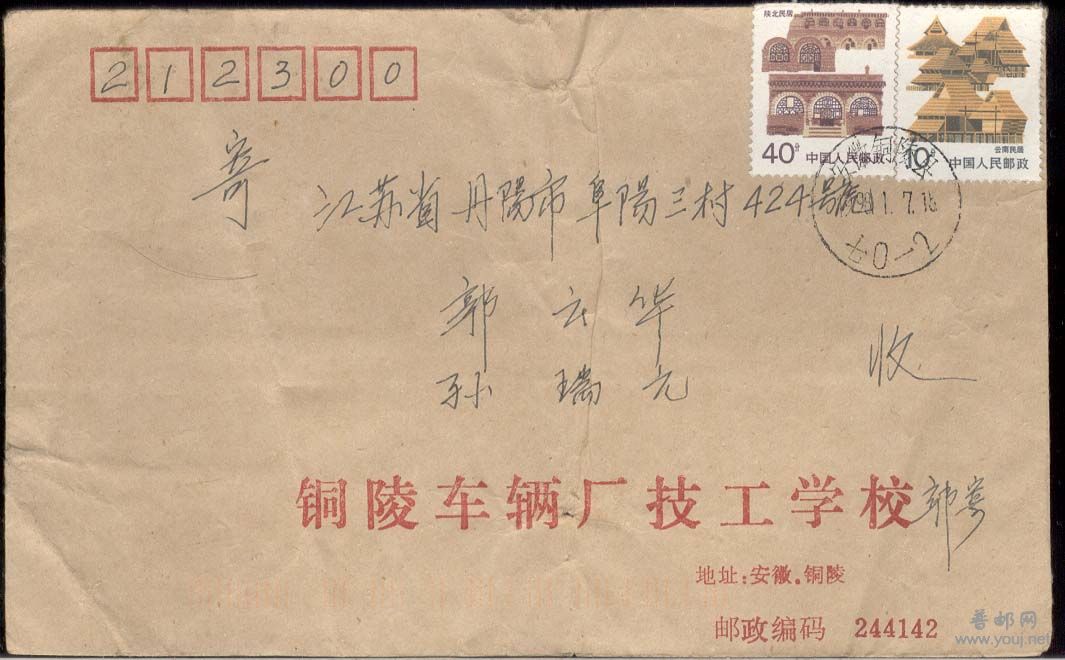 212300
陕北民居
40分 中国人民邮政
云南民居
10分 中国人民邮政
寄
江苏省丹陽市阜陽三村424号
郭云华
孙瑞元
收
铜陵车辆厂技工学校 郭寄
地址:安徽.铜陵
邮政编码 244142
普邮网
www.youj.net